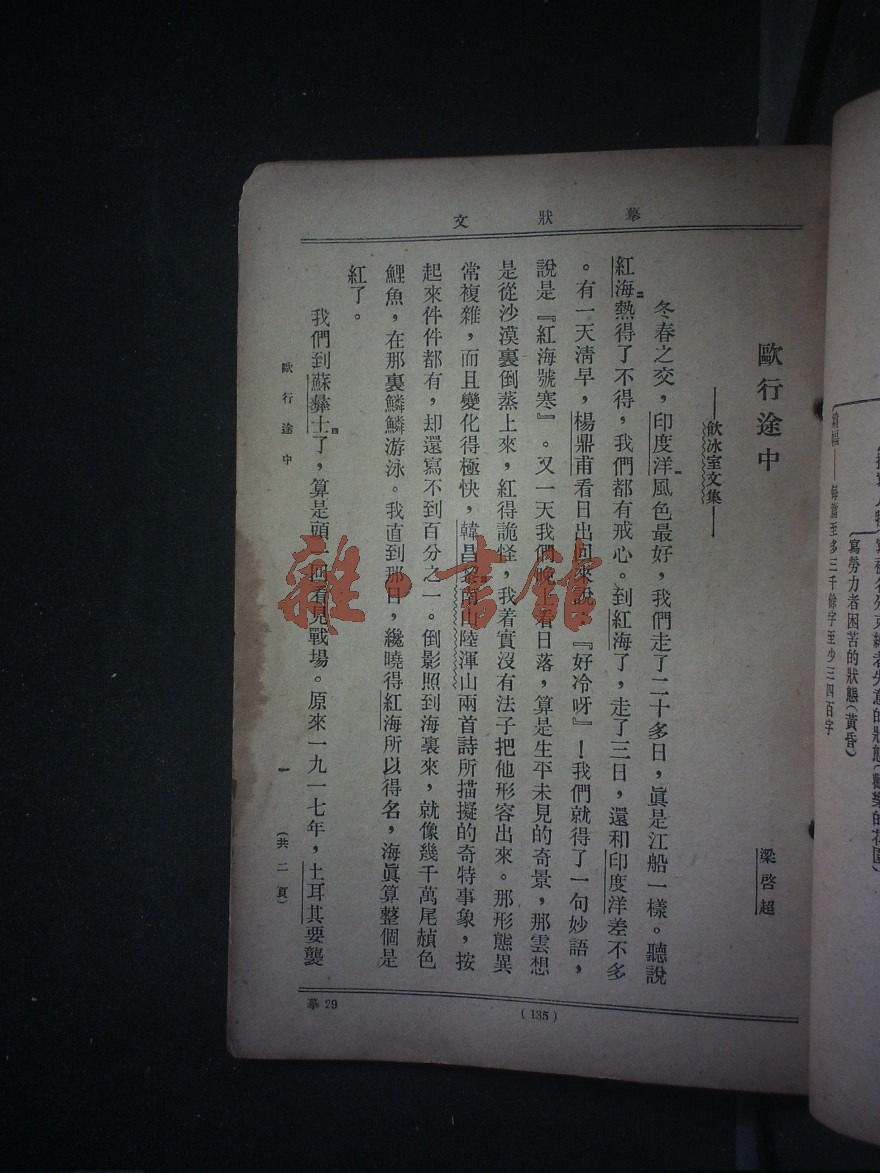 寫勞力者困苦的狀態(黃昏)
每篇至多三千餘字至少三四百字
摹狀文
歐行途中
梁啓超
——飲冰室文集——
冬春之交，印度洋風色最好，我們走了二十多日，眞是江船一樣。聽說
紅海熱得了不得，我們都有戒心。到紅海了，走了三日，還和印度洋差不多
。有一天淸早，楊鼎甫看日出回來說：『好冷呀』！我們就得了一句妙語，
說是『紅海號寒』。又一天我們晚上看日落，算是生平未見的奇景，那雲想
是從沙漠裏倒蒸上來，紅得詭怪，我着實沒有法子把他形容出來。那形態異
常複雜，而且變化得極快，韓昌黎南山陸渾山兩首詩所描擬的奇特事象，按
起來件件都有，却還寫不到百分之一。倒影照到海裏來，就像幾千萬尾赬色
鯉魚，在那裏鱗鱗游泳。我直到那日，纔曉得紅海所以得名，海眞算整個是
紅了。
我們到蘇彝士了，算是頭一回看見戰場。原來一九一七年，土耳其要襲
歐行途中
一
(共二頁)
摹 29
(135)
雜·書館